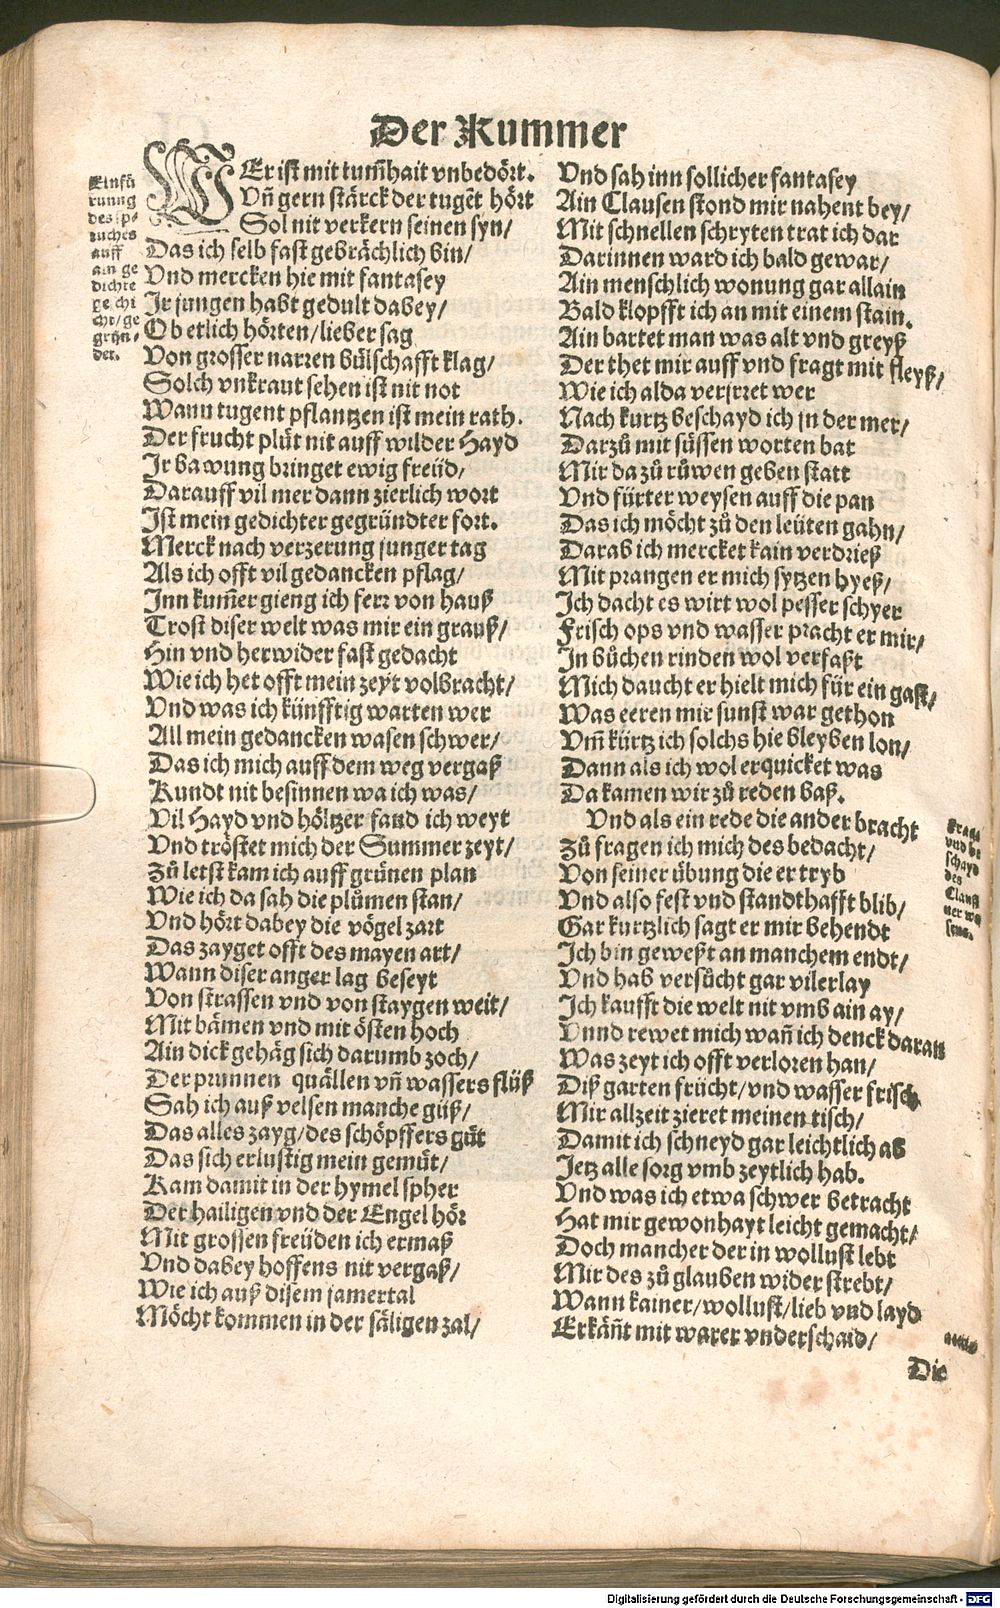 Der Kummer
Einfü
runng
des sp-
ruches
auff
ain ge
dichte
ge chi
cht/ge
grün-
det.
WEr ist mit tum̃hait vnbedört.
Vñ gern stärck der tugẽt hört
Sol nit verkern seinen syn/
Das ich selb fast gebrächlich bin/
Vnd mercken hie mit fantasey
Ir jungen habt gedult dabey/
Ob etlich hörten/lieber sag
Von grosser narren bůlschafft klag/
Solch vnkraut sehen ist nit not
Wann tugent pflantzen ist mein rath.
Der frucht plüt nit auff wilder Hayd
Ir bawung bringet ewig freüd/
Darauff vil mer dann zierlich wort
Ist mein gedichter gegründter fort.
Merck nach verzerung junger tag
Als ich offt vil gedancken pflag/
Inn kum̃er gieng ich ferr von hauß
Trost diser welt was mir ein grauß/
Hin vnd herwider fast gedacht
Wie ich het offt mein zeyt volbracht/
Vnd was ich künfftig warten wer
All mein gedancken wasen schwer/
Das ich mich auff dem weg vergaß
Kundt nit besinnen wa ich was/
Vil Hayd vnd höltzer fand ich weyt
Vnd tröstet mich der Summer zeyt/
Zů letst kam ich auff grünen plan
Wie ich da sah die plůmen stan/
Vnd hört dabey die vögel zart
Das zayget offt des mayen art/
Wann diser anger lag beseyt
Von strassen vnd von staygen weit/
Mit bämen vnd mit östen hoch
Ain dick gehäg sich darumb zoch/
Der prunnen quällen vñ wassers flüß
Sah ich auß velsen manche güß/
Das alles zayg/des schöpffers güt
Das sich erlustig mein gemüt/
Kam damit in der hymel spher
Der hailigen vnd der Engel hör
Mit grossen freüden ich ermaß
Vnd dabey hoffens nit vergaß/
Wie ich auß disem jamertal
Möcht kommen in der säligen zal/
Vnd sah inn sollicher fantasey
Ain Clausen stond mir nahent bey/
Mit schnellen schryten trat ich dar
Darinnen ward ich bald gewar/
Ain menschlich wonung gar allain
Bald klopfft ich an mit einem stain.
Ain bartet man was alt vnd greyß
Der thet mir auff vnd fragt mit fleyß/
Wie ich alda verjrret wer
Nach kurtz beschayd ich jn der mer/
Darzů mit süssen worten bat
Mir da zů růwen geben statt
Vnd fürter weysen auff die pan
Das ich möcht zů den leüten gahn/
Darab ich mercket kain verdrieß
Mit prangen er mich sytzen hyeß/
Ich dacht es wirt wol pesser schyer
Frisch ops vnd wasser pracht er mir/
In bůchen rinden wol verfaßt
Mich daucht er hielt mich für ein gast/
Was eeren mir sunst war gethon
Vm̃ kürtz ich solchs hie bleyben lon/
Dann als ich wol erquicket was
Da kamen wir zů reden baß.
Vnd als ein rede die ander bracht
Zů fragen ich mich des bedacht/
Von seiner übung die er tryb
Vnd also fest vnd standthafft blib/
Gar kurtzlich sagt er mir behendt
Ich bin geweßt an manchem endt/
Vnd hab versůcht gar vilerlay
Ich kaufft die welt nit vmb ain ay/
Vnnd rewet mich wañ ich denck daran
Was zeyt ich offt verloren han/
Diß garten frücht/vnd wasser frisch
Mir allzeit zieret meinen tisch/
Damit ich schneyd gar leichtlich ab
Jetz alle sorg vmb zeytlich hab.
Vnd was ich etwa schwer betracht
Hat mir gewonhayt leicht gemacht/
Doch mancher der in wollust lebt
Mir des zů glauben wider strebt/
Wann kainer/wollust/lieb vnd layd
Erkäñt mit warer vnderschaid/
Frag
vnd be
schayd
des
Clauß
ner we
sens.
Die
Digitalisierung gefördert durch die Deutsche Forschungsgemeinschaft - DFG